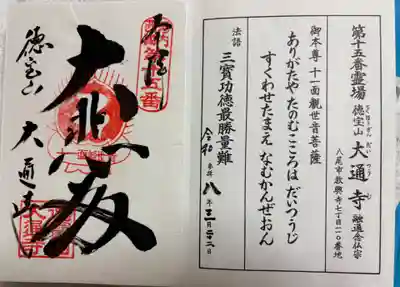 第十五番霊場
徳宝山 大通寺 融通念仏宗
とくほうざん だいつうじ
八尾市教興寺七丁目一一〇番地
御本尊 十一面観世音菩薩
ありがたや たのむこころは だいつうじ
すくわせたまえ なむかんぜおん
法語
三寳功徳最勝量難
令和 参拝 八年三月二十二日
奉拝
大悲殿
徳宝山 大通寺